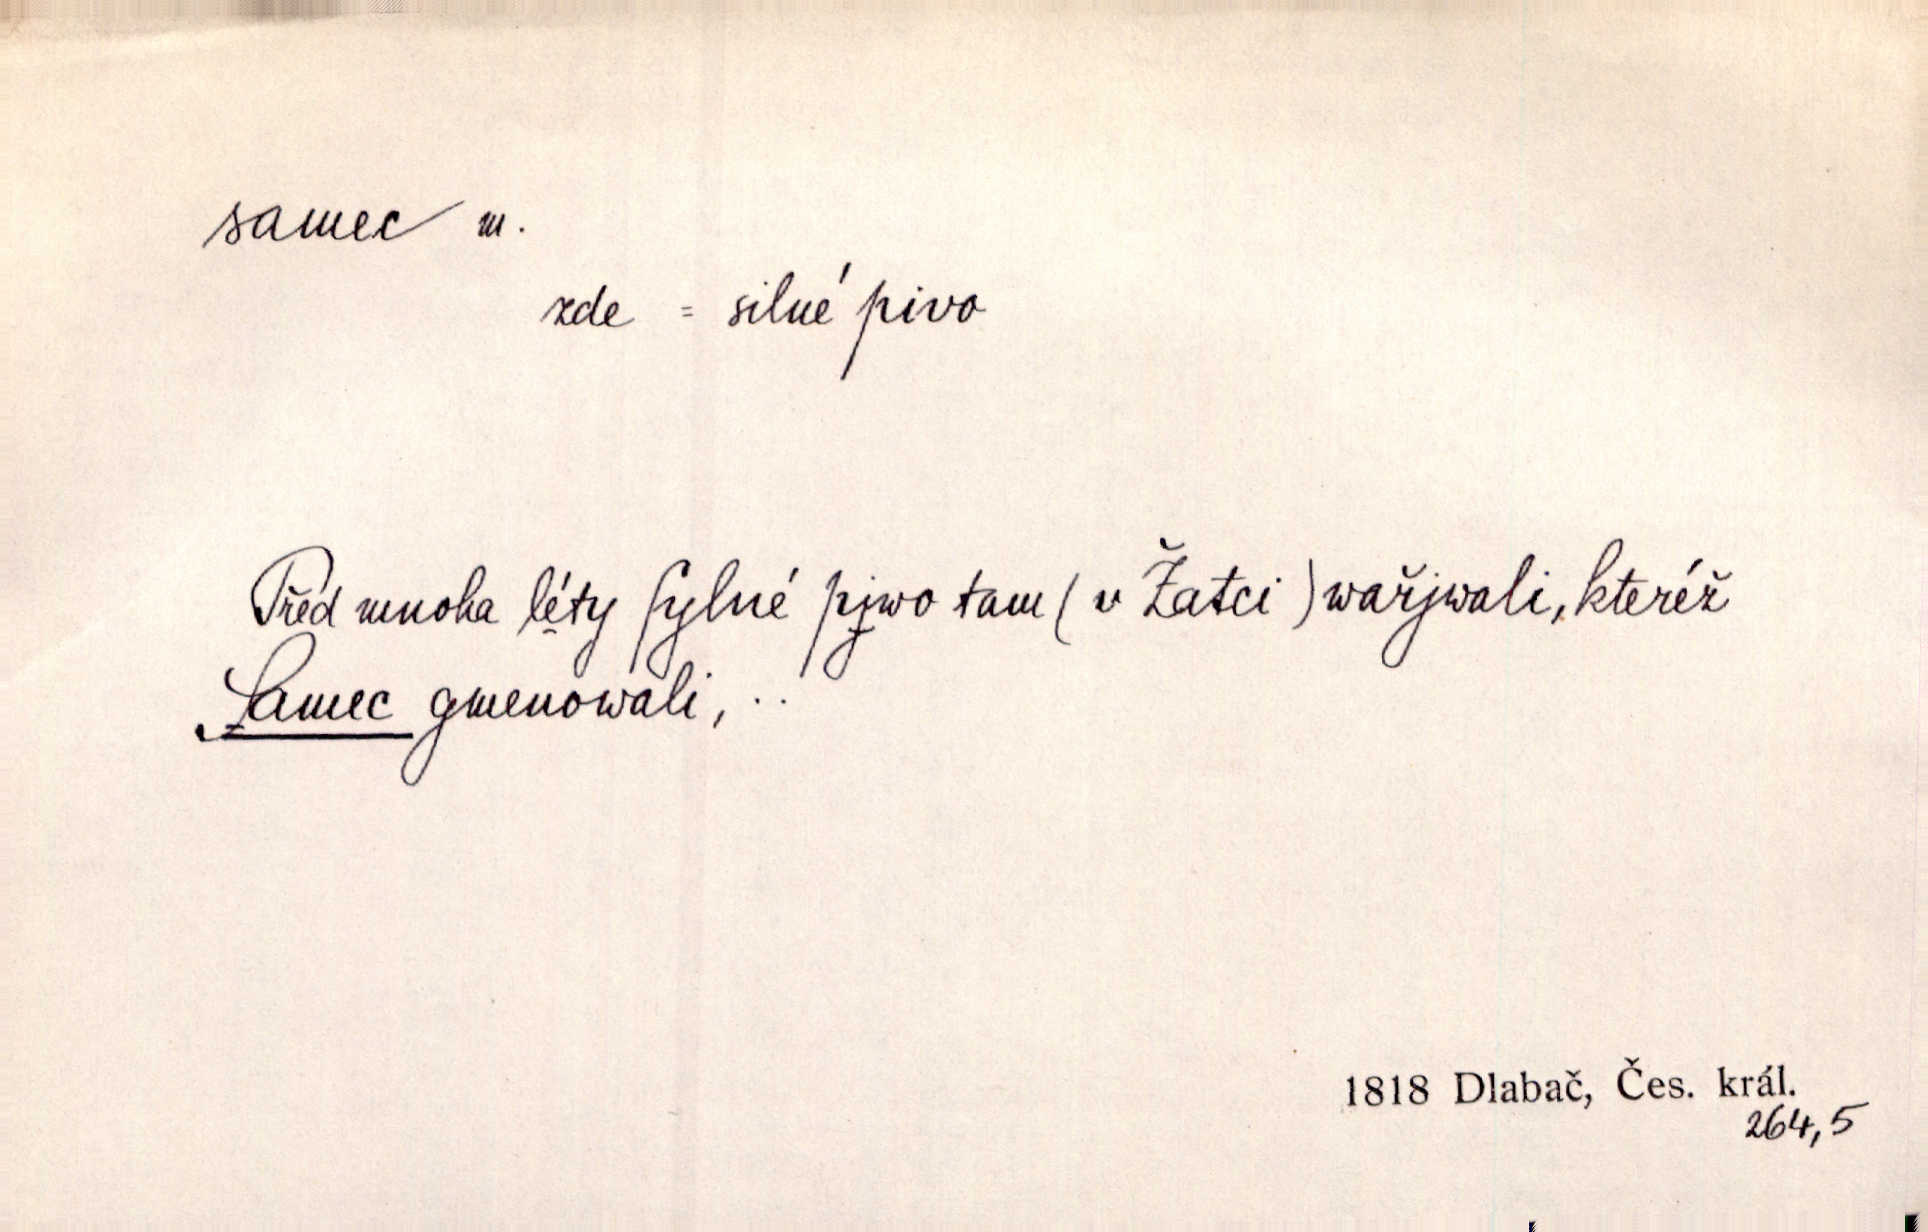 samec m.
zde = silné pivo
Před mnoha léty ſylné pjwo tam (v Žatci) wařjwali, kteréž
Samec gmenowali, ..
1818 Dlabač, Čes. král.
264,5